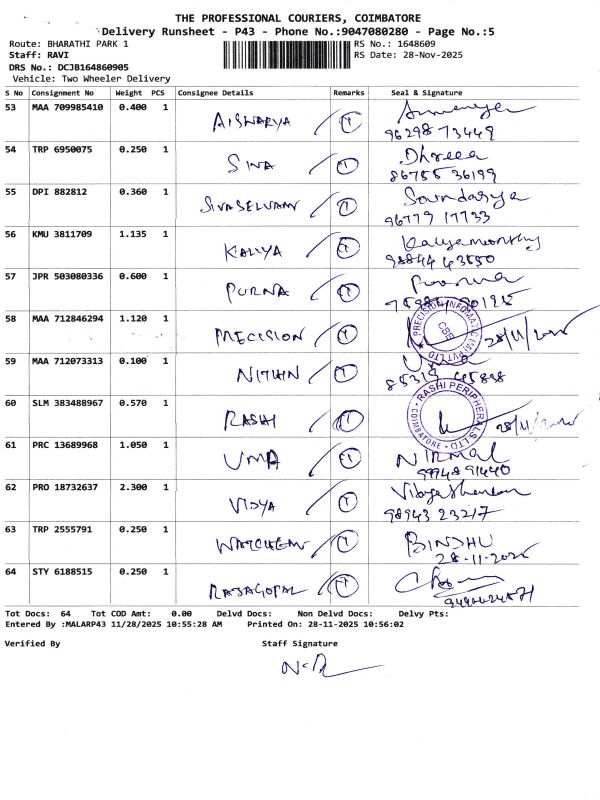 THE PROFESSIONAL COURIERS, COIMBATORE
Delivery Runsheet - P43 - Phone No.:9047080280 - Page No.:5
Route: BHARATHI PARK 1 RS No.: 1648609
Staff: RAVI RS Date: 28-Nov-2025
DRS No.: DCJB164860905
Vehicle: Two Wheeler Delivery
S No Consignment No Weight PCS Consignee Details Remarks Seal & Signature
53 MAA 709985410 0.400 1 AISWARYA 1
96298 73449
54 TRP 6950075 0.250 1 SIVA 1
86755 36199
55 DPI 882812 0.360 1 SIVASELVAM 1 Soundarya
96779 17733
56 KMU 3811709 1.135 1 KALIYA 1 Kaliyamoorthy
57 JPR 503080336 0.600 1 PURNA 1 Poorna
58 MAA 712846294 1.120 1 PRECISION 1 28/11/2025
PRECISION INFOMATIC (M) PVT LTD
CBE
59 MAA 712073313 0.100 1 NITHIN 1 Uma
60 SLM 383488967 0.570 1 RASHI 1 28/11/2025
RASHI PERIPHERALS LTD
COIMBATORE
61 PRC 13689968 1.050 1 UMA 1 NIRMAL
99948 91440
62 PRO 18732637 2.300 1 VIDYA 1
98943 23217
63 TRP 2555791 0.250 1 1 BINDHU
28-11-2025
64 STY 6188515 0.250 1 RAJAGOPAL 1
Tot Docs: 64 Tot COD Amt: 0.00 Delvd Docs: Non Delvd Docs: Delvy Pts:
Entered By :MALARP43 11/28/2025 10:55:28 AM Printed On: 28-11-2025 10:56:02
Verified By Staff Signature